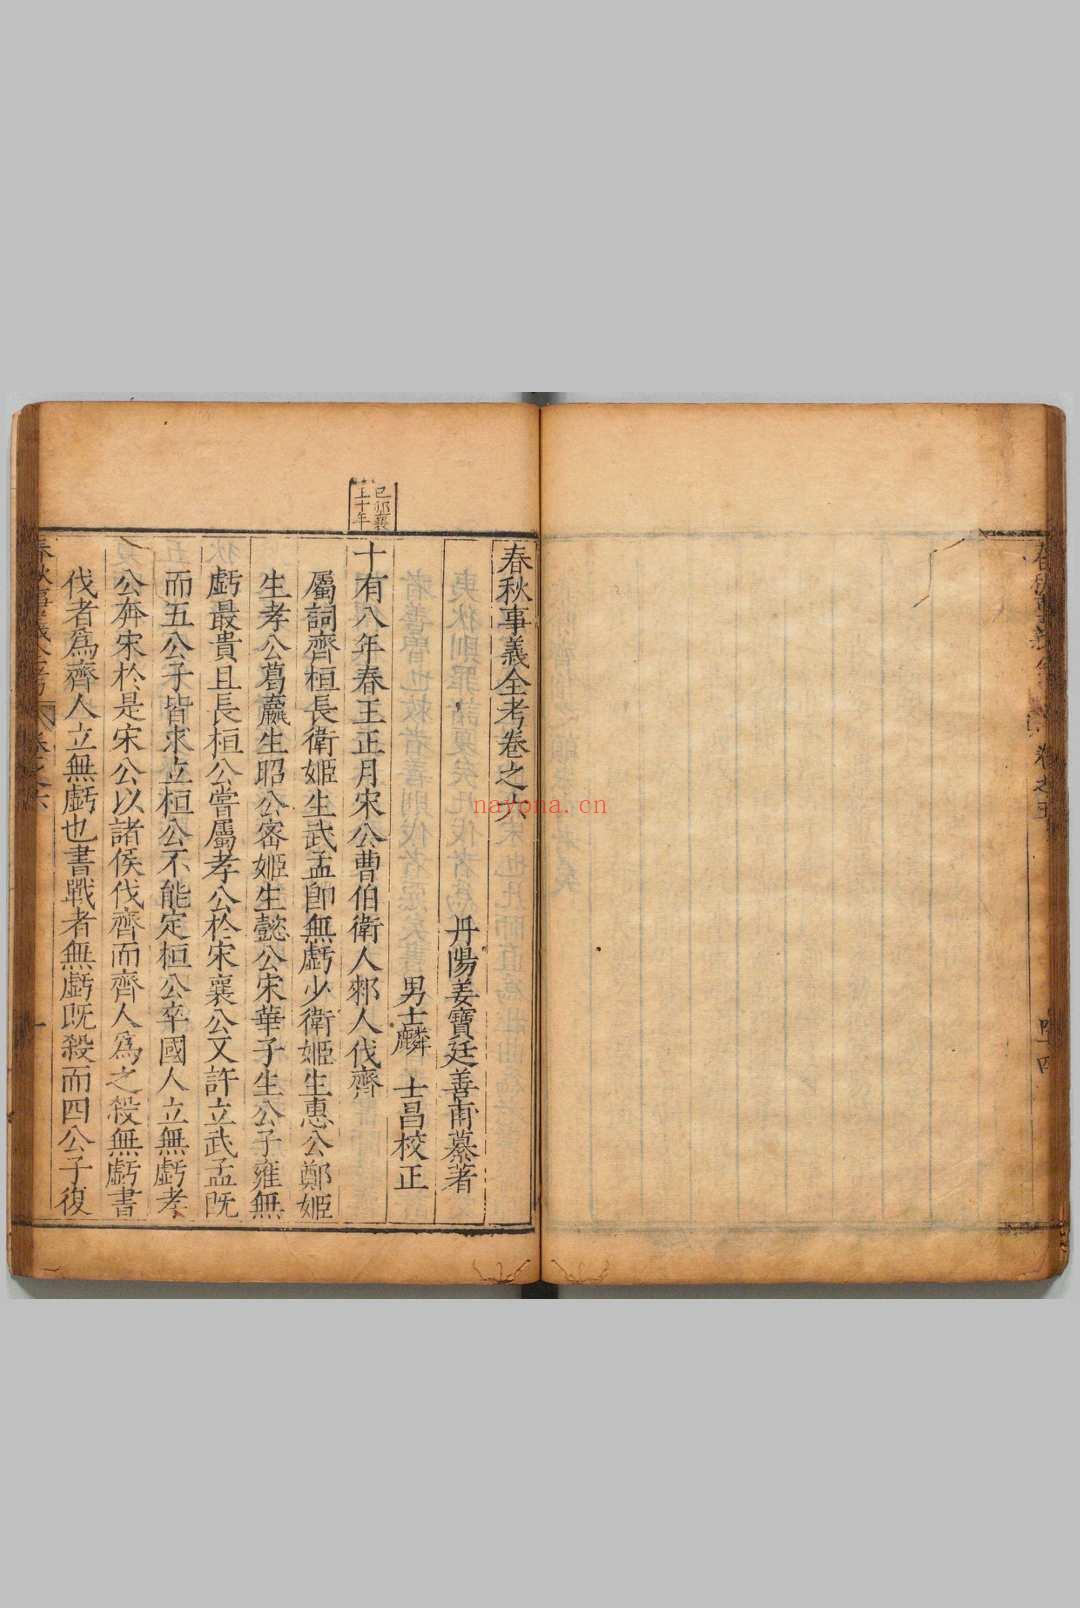 春秋事義全考卷之六
丹陽姜寶廷善甫纂著
男士麟 士昌校正
己卯襄
王十年
十有八年春王正月宋公曹伯衛人邾人伐齊
屬詞齊桓長衛姬生武孟即無虧少衛姬生惠公鄭姬
生孝公葛嬴生昭公密姬生懿公宋華子生公子雍無
虧最貴且長桓公嘗屬孝公於宋襄公又許立武孟既
而五公子皆求立桓公不能定桓公卒國人立無虧孝
公奔宋於是宋公以諸侯伐齊而齊人為之殺無虧書
伐者為齊人立無虧也書戰者無虧既殺而四公子復
春秋事義全考
卷之六
一
卷之五
nayona.cn